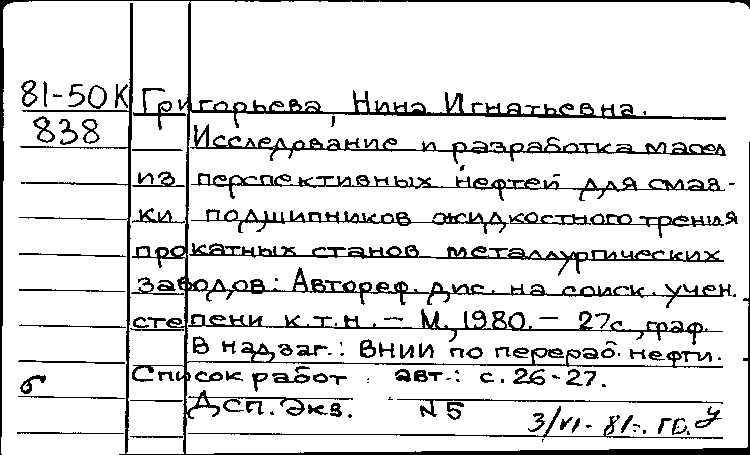 81-50К Григорьева, Нина Игнатьевна.
838 Исследование и разработка масел
из перспективных нефтей для смаз-
ки подшипников жидкостного трения
прокатных станов металлургических
заводов: Автореф. дис. на соиск. учен.
степени к.т.н. – М., 1980. – 27с., граф.
В надзаг.: ВНИИ по перераб. нефти.
Список работ авт.: с. 26-27.
ДСП. Экз. N5
3/VI-81г.